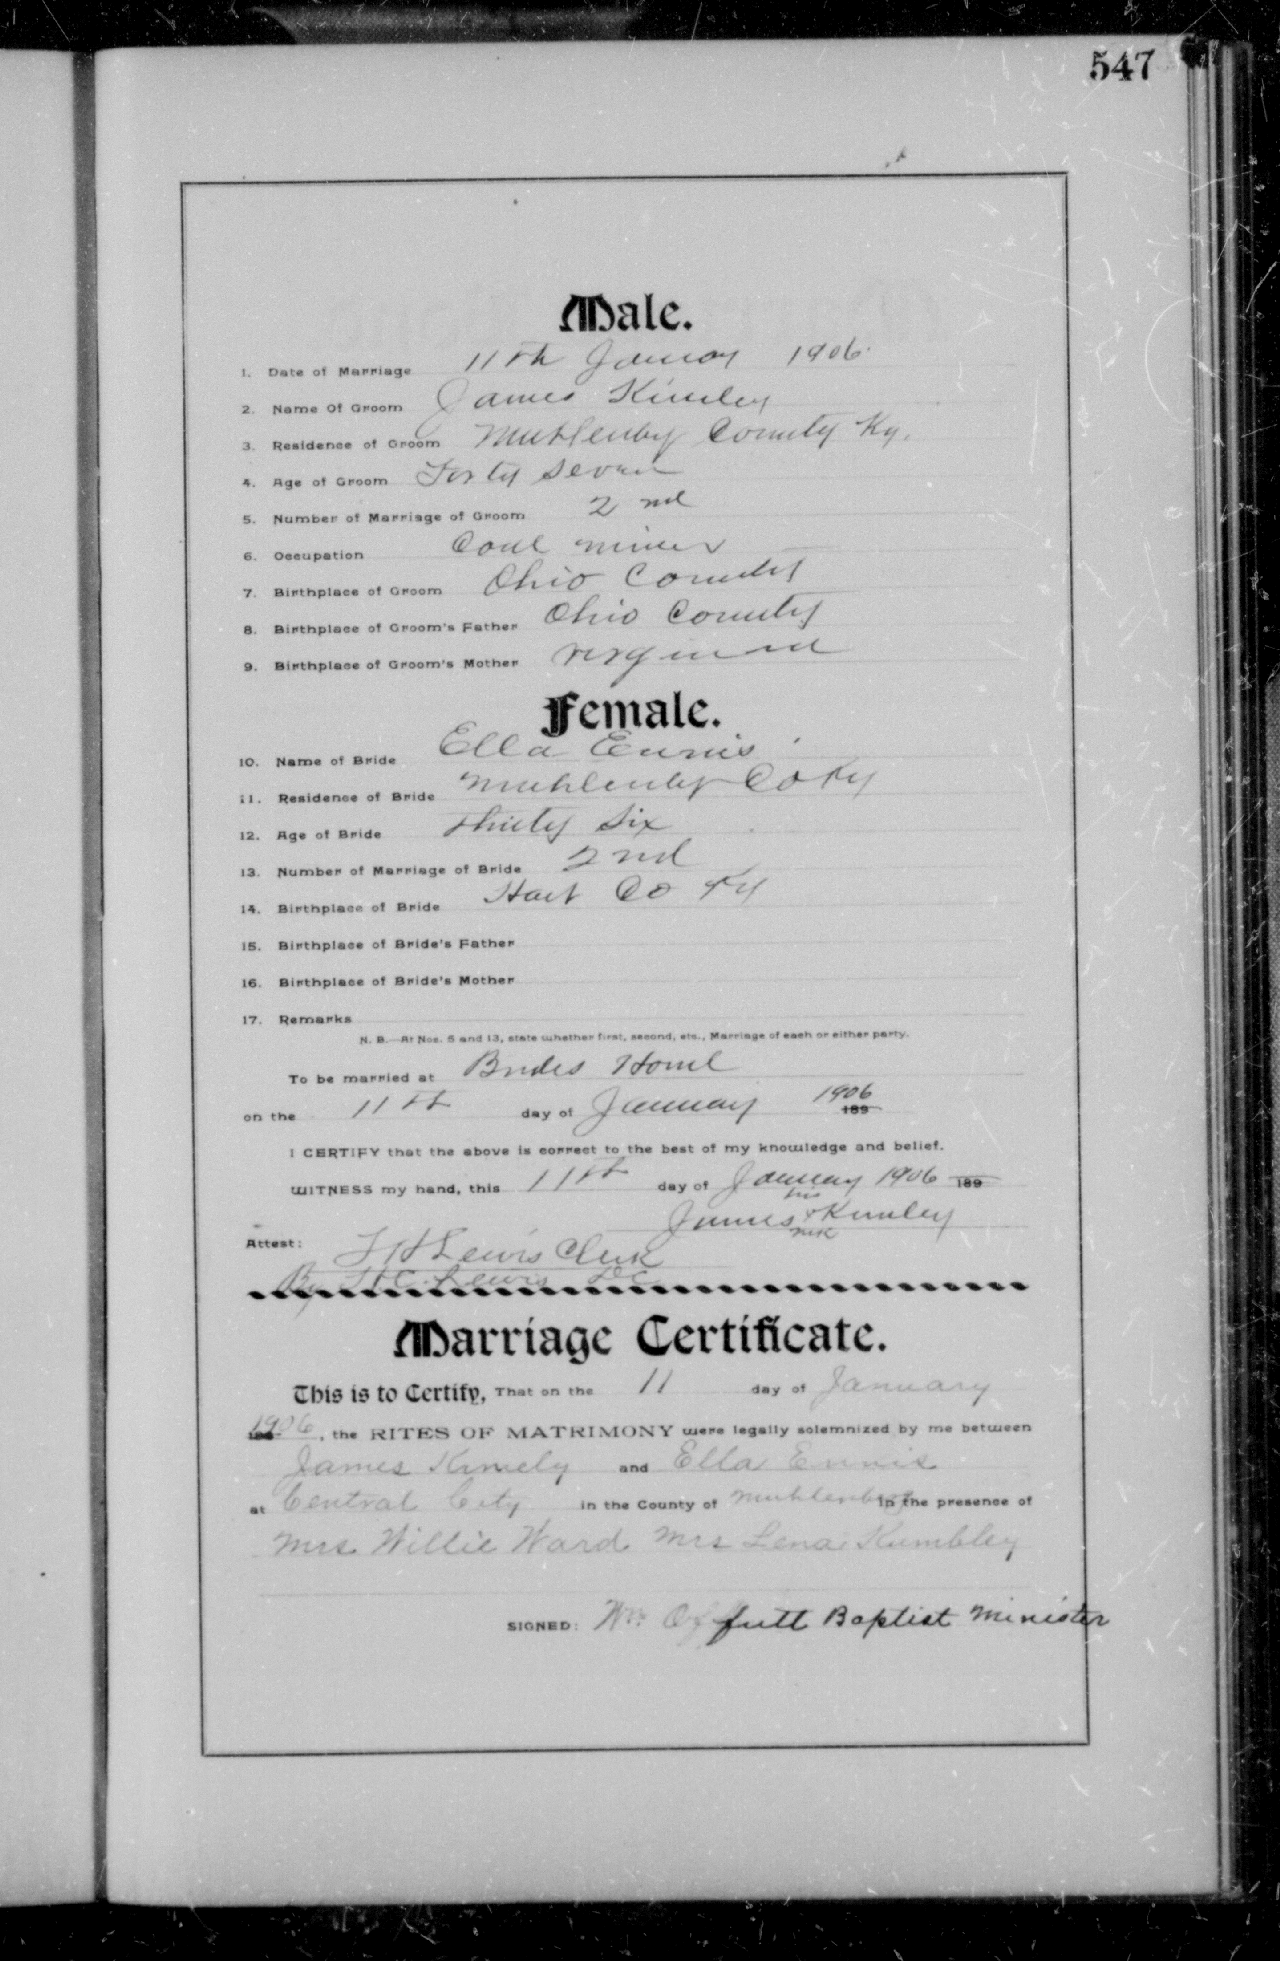 547
Male.
1. Date of Marriage 11th Januay 1906.
2. Name Of Groom James Kimley
3. Residence of Groom Muhlenbg County Ky.
4. Age of Groom Forty Seven
5. Number of Marriage of Groom 2 nd
6. Occupation Coal miner
7. Birthplace of Groom Ohio County
8. Birthplace of Groom's Father Ohio County
9. Birthplace of Groom's Mother Virginia
Female.
10. Name of Bride Ella Ennis
11. Residence of Bride Muhlenbg Co Ky
12. Age of Bride Thirty Six
13. Number of Marriage of Bride 2nd
14. Birthplace of Bride Hart Co Ky
15. Birthplace of Bride's Father
16. Birthplace of Bride's Mother
17. Remarks
N. B.—At Nos. 5 and 13, state whether first, second, etc., Marriage of each or either party.
To be married at Brides Home
on the 11th day of January 1906 189
I CERTIFY that the above is correct to the best of my knowledge and belief.
WITNESS my hand, this 11th day of January 1906 189
his
James x Kimley
mrk
Attest: Lewis Clerk
By Lewis DC
Marriage Certificate.
This is to Certify, That on the 11 day of January
1906, the RITES OF MATRIMONY were legally solemnized by me between
James Kimely and Ella Ennis
at Central City in the County of Muhlenberg in the presence of
Mrs Willie Ward Mrs Lena Kumbley
SIGNED: Wm Offutt Baptist Minister